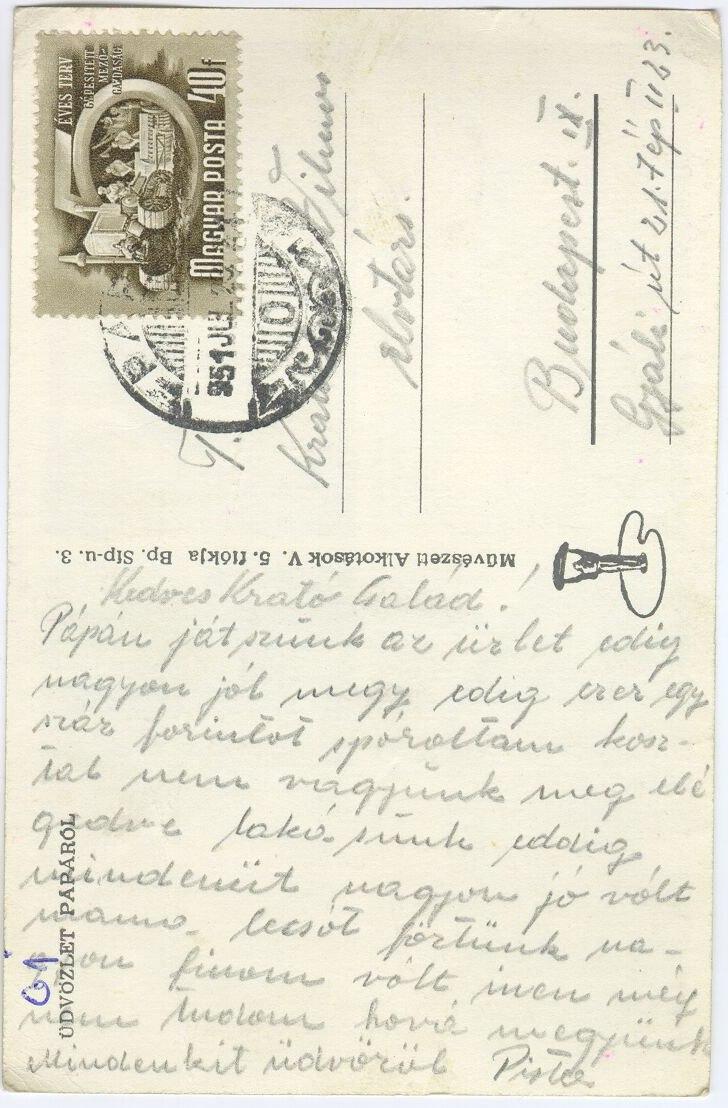 5 ÉVES TERV
GÉPESÍTETT
MEZŐ-
GAZDASÁG
40f
MAGYAR POSTA
951 JUL
T.
Krató Vilmos
elvtárs.
Budapest. IX.
Gyáli út 21. 7 ép II 23.
Művészeti Alkotások V. 5. fiókja Bp. Síp-u. 3.
Kedves Krató Család!
Pápán játszunk az üzlet edig
nagyon jól megy edig ezer egy
száz forintot spóroltam kosz-
tal nem vagyunk meg elé
gedve lakásunk eddig
mindenüt nagyon jó vólt
ma lecsót főztünk na-
gyon finom vólt inen még
nem tudom hová megyünk
Mindenkit üdvözöl Pista
ÜDVÖZLET PÁPÁRÓL
61